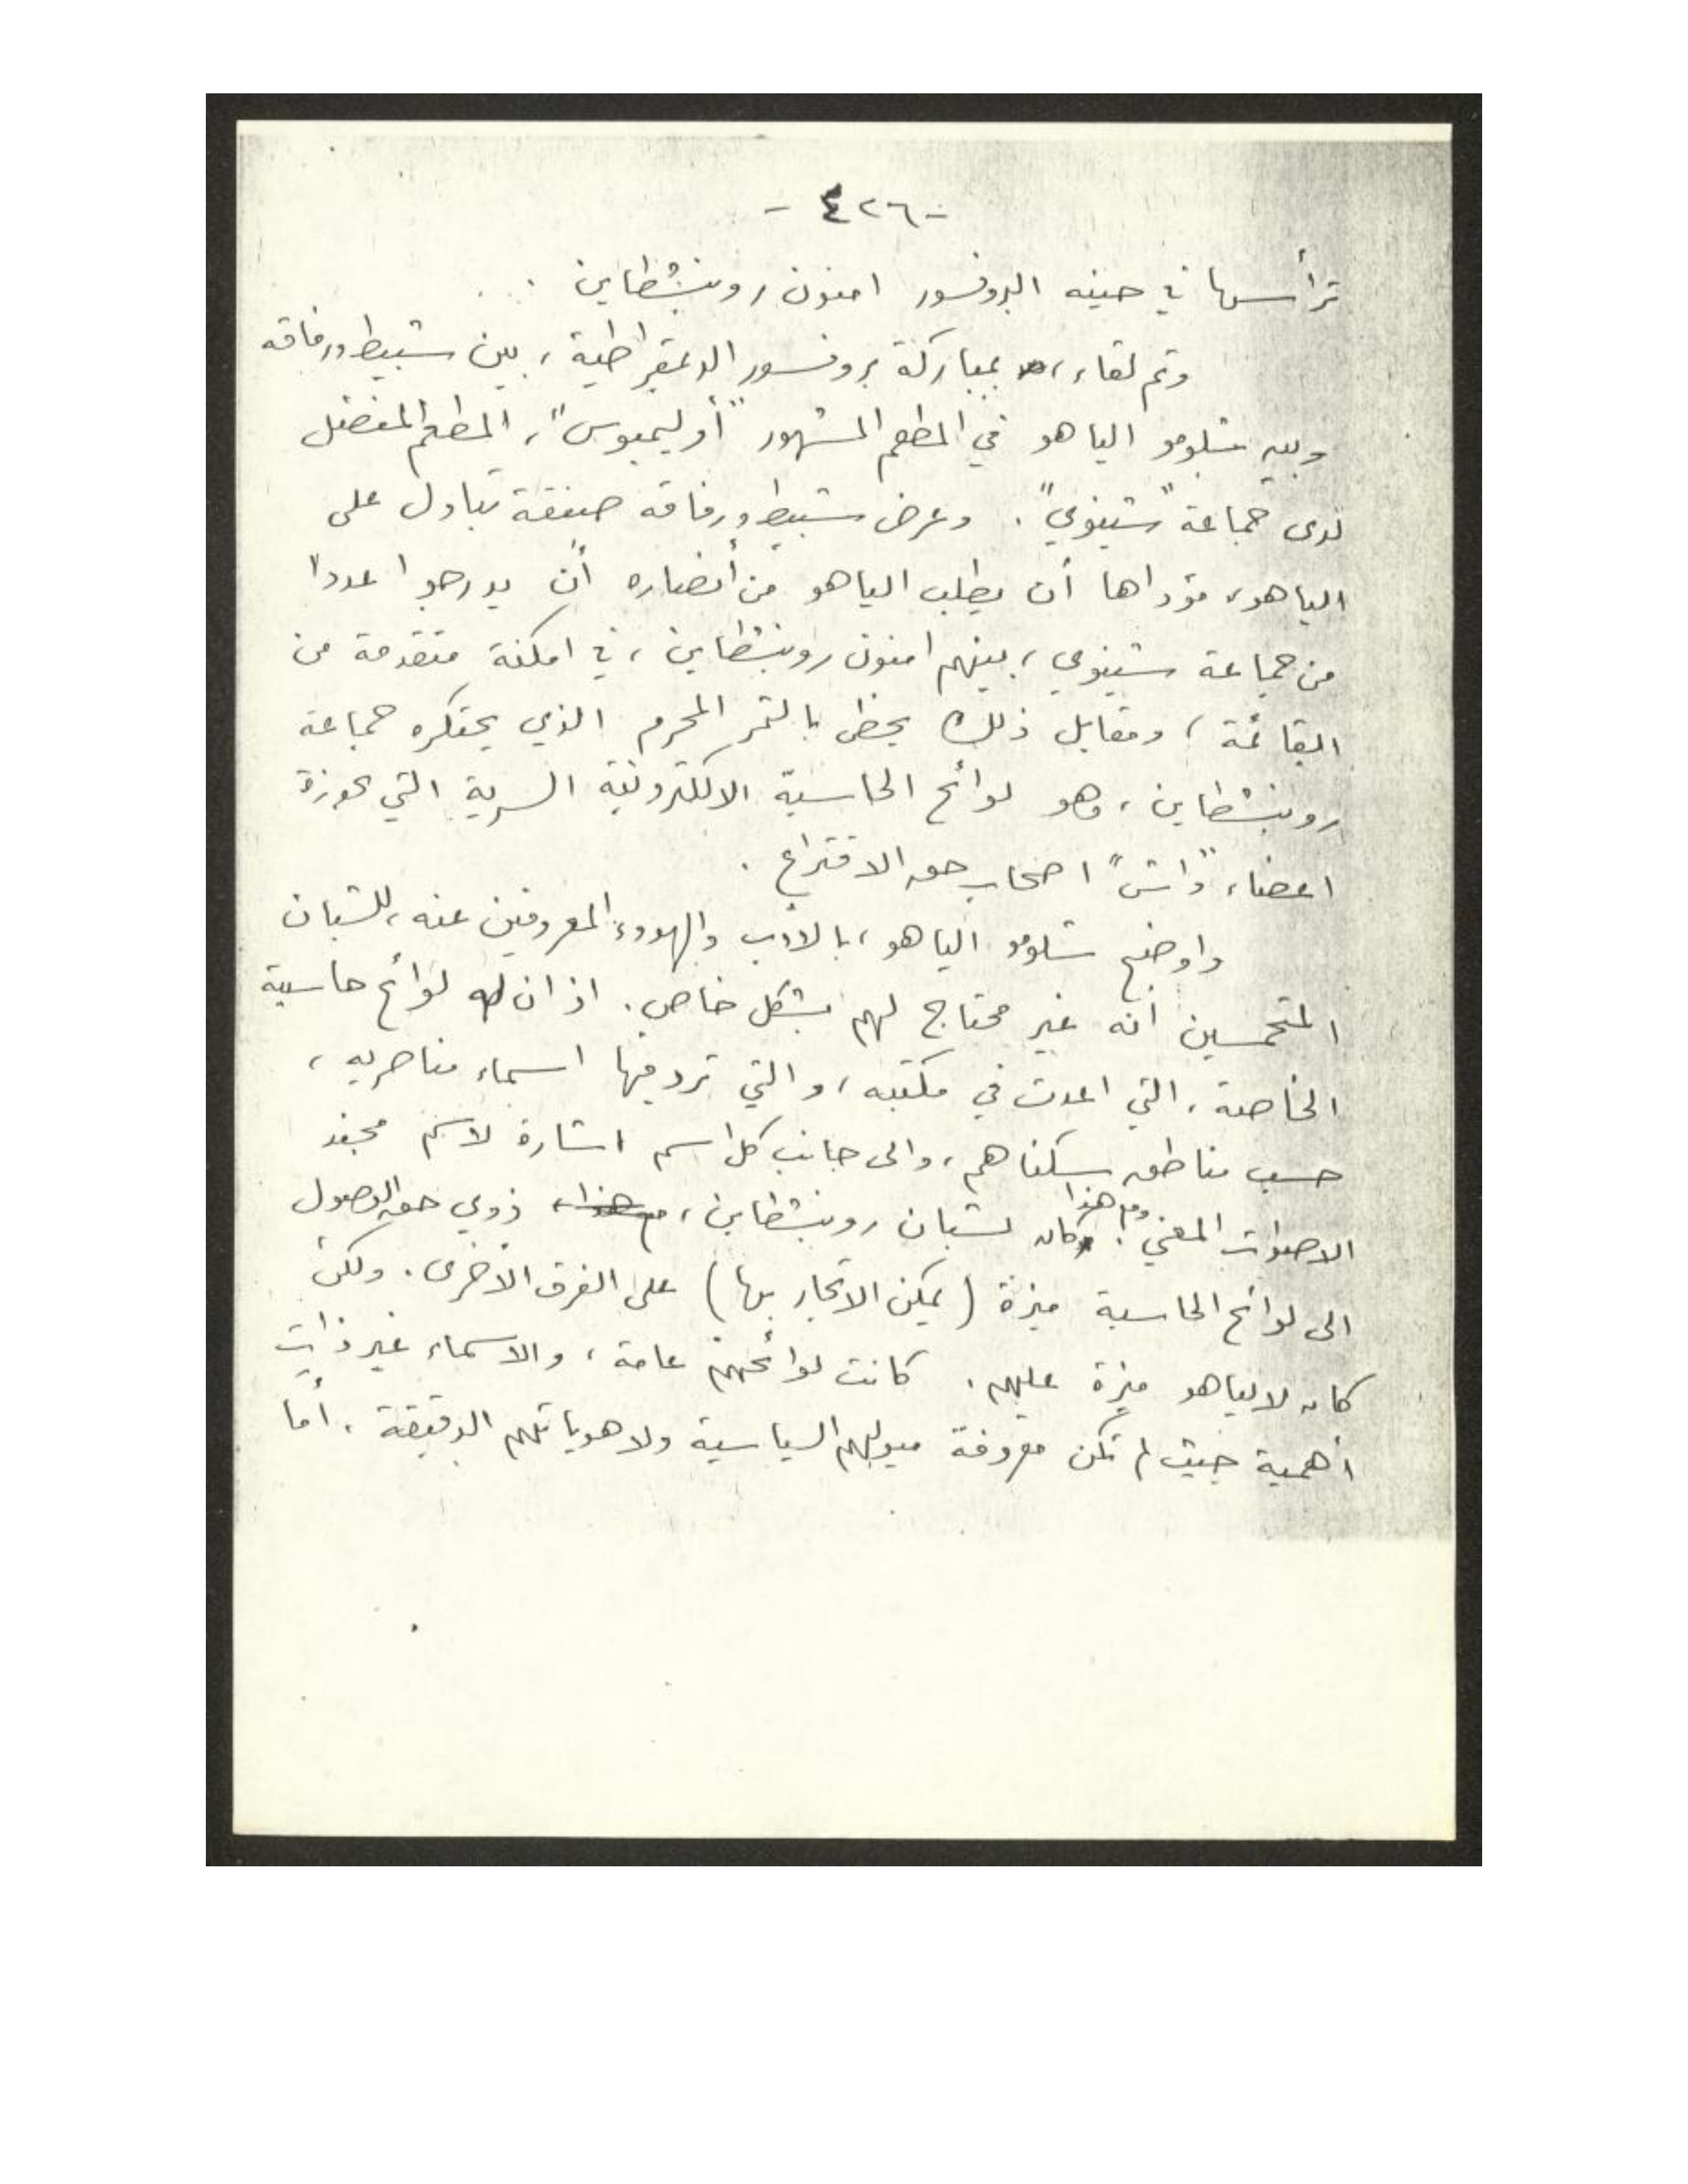 - ٤٢٦ -
ترأسها في حينه البروفسور امنون روبنشطاين .
وتم لقاء، بمباركة بروفسور الدمقراطية، بين شبيط ورفاقه
وبين شلومو الياهو في المطعم المشهور "أوليمبوس"، المطعم المفضل
لدى جماعة "شينوي". وعرض شبيط ورفاقه صفقة تبادل على
الياهو، مؤداها أن يطلب الياهو من أنصاره أن يدرجوا عددا
من جماعة شينوي، بينهم امنون روبنشطاين، في امكنة متقدمة من
القائمة، ومقابل ذلك يحظى بالثمر المحرم الذي يحتكره جماعة
روبنشطاين، وهو لوائح الحاسبة الالكترونية السرية التي بحوزة
اعضاء "داش" اصحاب حق الاقتراع .
واوضح شلومو الياهو، بالأدب والهدوء المعروفين عنه، للشبان
المتحمسين أنه غير محتاج لهم بشكل خاص. اذ ان له لوائح حاسبة
الخاصة، التي اعدت في مكتبه، والتي ترد فيها اسماء مناصريه،
حسب مناطق سكناهم، والى جانب كل اسم اشارة لاسم مجند
الاصوات المعني. ومع هذا كان لشبان روبنشطاين، مع هذا، ذوي حق الوصول
الى لوائح الحاسبة ميزة (يمكن الاتجار بها) على الفرق الأخرى. ولكن
كان لالياهو ميزة عليهم. كانت لوائحهم عامة، والاسماء غير ذات
أهمية حيث لم تكن معروفة ميولهم السياسية ولا هوياتهم الدقيقة. أما